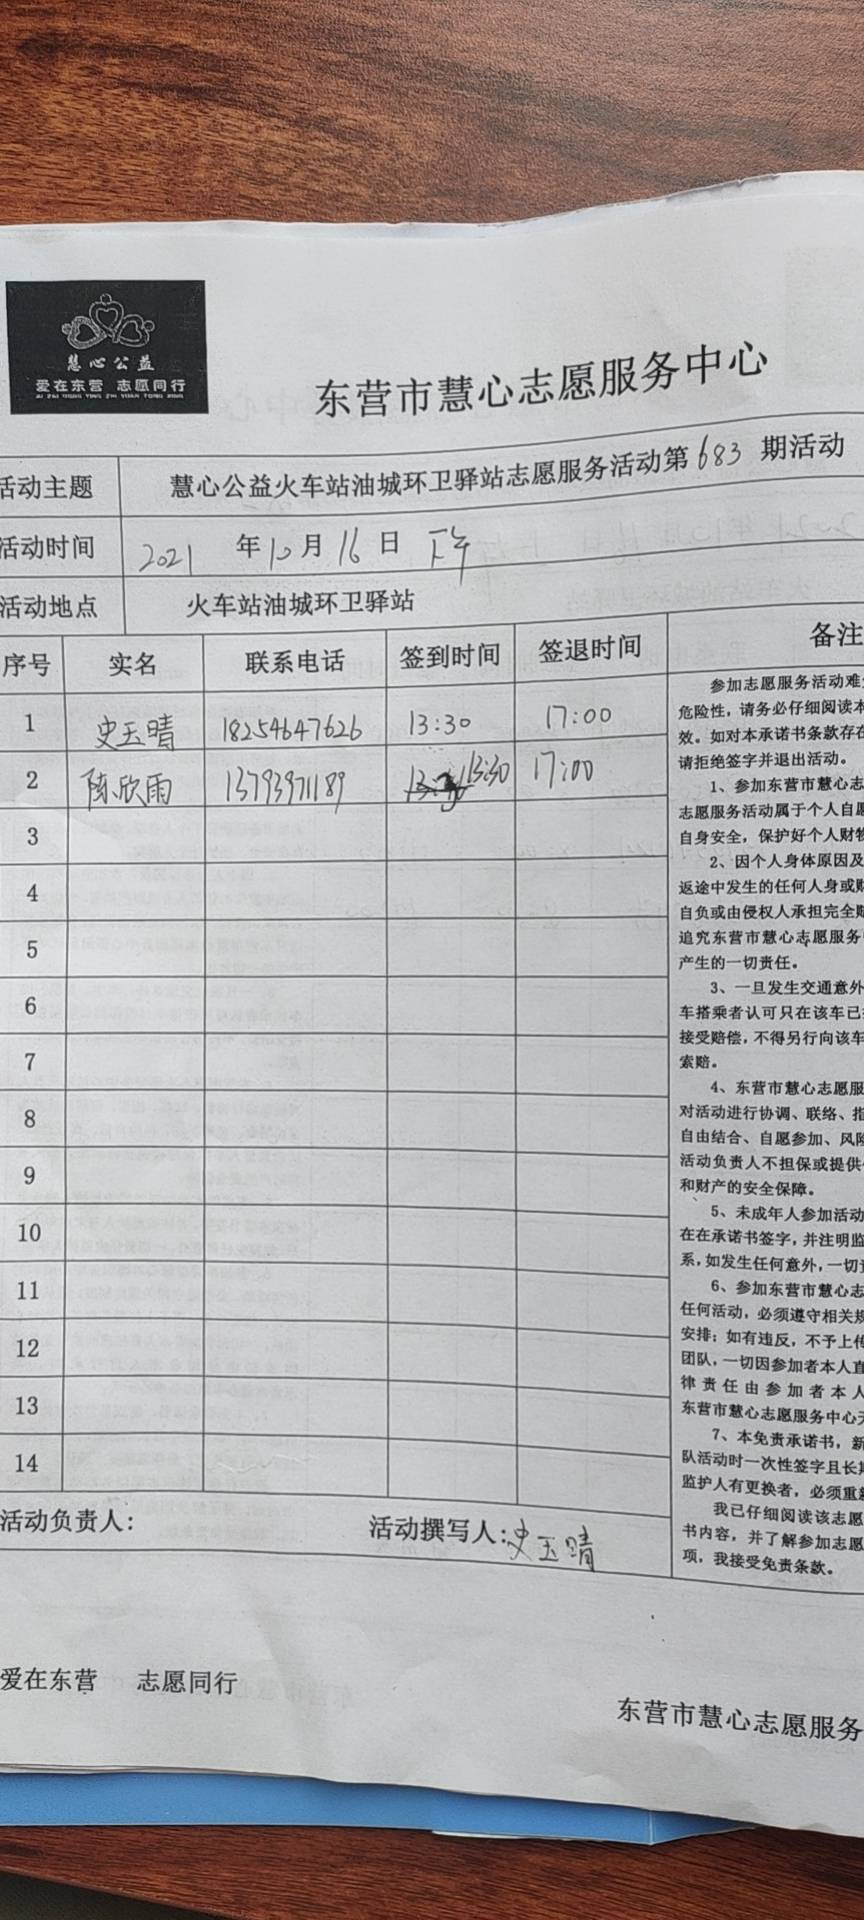 慧心公益
爱在东营 志愿同行
AI ZAI DONG YING ZHI YUAN TONG XING
东营市慧心志愿服务中心
活动主题 慧心公益火车站油城环卫驿站志愿服务活动第683期活动
活动时间 2021年10月16日 下午
活动地点 火车站油城环卫驿站
序号 实名 联系电话 签到时间 签退时间 备注
1 史玉晴 18254647626 13:30 17:00
2 陈欣雨 13793971189 13:30 17:00
3
4
5
6
7
8
9
10
11
12
13
14
参加志愿服务活动难
危险性，请务必仔细阅读本
效。如对本承诺书条款存在
请拒绝签字并退出活动。
1、参加东营市慧心志
志愿服务活动属于个人自愿
自身安全，保护好个人财物
2、因个人身体原因及
返途中发生的任何人身或财
自负或由侵权人承担完全赔
追究东营市慧心志愿服务中
产生的一切责任。
3、一旦发生交通意外
车搭乘者认可只在该车已
接受赔偿，不得另行向该车
索赔。
4、东营市慧心志愿服
对活动进行协调、联络、指
自由结合、自愿参加、风险
活动负责人不担保或提供
和财产的安全保障。
5、未成年人参加活动
在在承诺书签字，并注明监
系，如发生任何意外，一切责
6、参加东营市慧心志
任何活动，必须遵守相关规
安排；如有违反，不予上传
团队，一切因参加者本人直
律责任由参加者本人
东营市慧心志愿服务中心无
7、本免责承诺书，新
队活动时一次性签字且长期
监护人有更换者，必须重新
我已仔细阅读该志愿
书内容，并了解参加志愿
项，我接受免责条款。
活动负责人： 活动撰写人：史玉晴
爱在东营 志愿同行
东营市慧心志愿服务